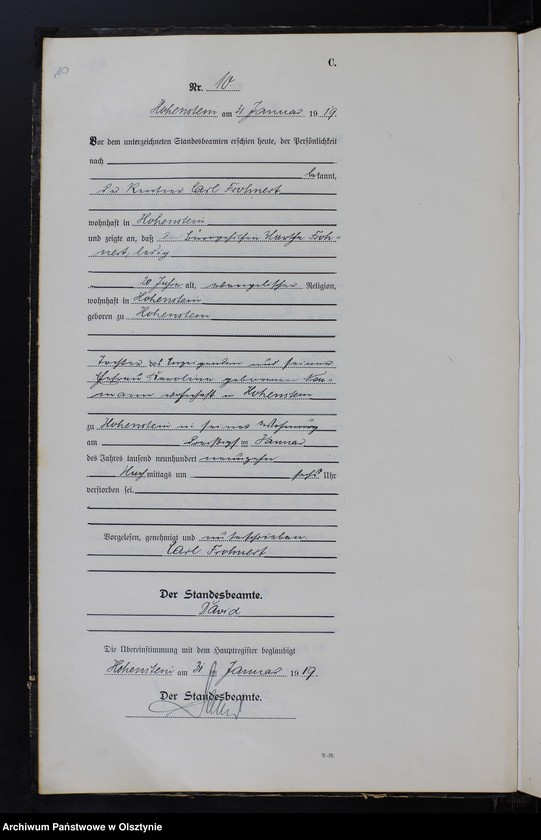 10
C.
Nr. 10
Hohenstein am 31 Januar 1919.
Vor dem unterzeichneten Standesbeamten erschien heute, der Persönlichkeit
nach
bekannt,
der Rentier Carl Frohnert
wohnhaft in Hohenstein
und zeigte an, daß die Martha Froh-
nert, ledig
20 Jahre alt, evangelischer Religion,
wohnhaft in Hohenstein
geboren zu Hohenstein
Tochter des Anzeigenden und seiner
Ehefrau Karoline geborenen Neu-
mann wohnhaft in Hohenstein
zu Hohenstein in seiner Wohnung
am Dreißigsten Januar
des Jahres tausend neunhundert neunzehn
Nachmittags um sechs Uhr
verstorben sei.
Vorgelesen, genehmigt und unterschrieben
Carl Frohnert
Der Standesbeamte.
David
Die Übereinstimmung mit dem Hauptregister beglaubigt
Hohenstein am 31 Januar 1919.
Der Standesbeamte.
David
Archiwum Państwowe w Olsztynie